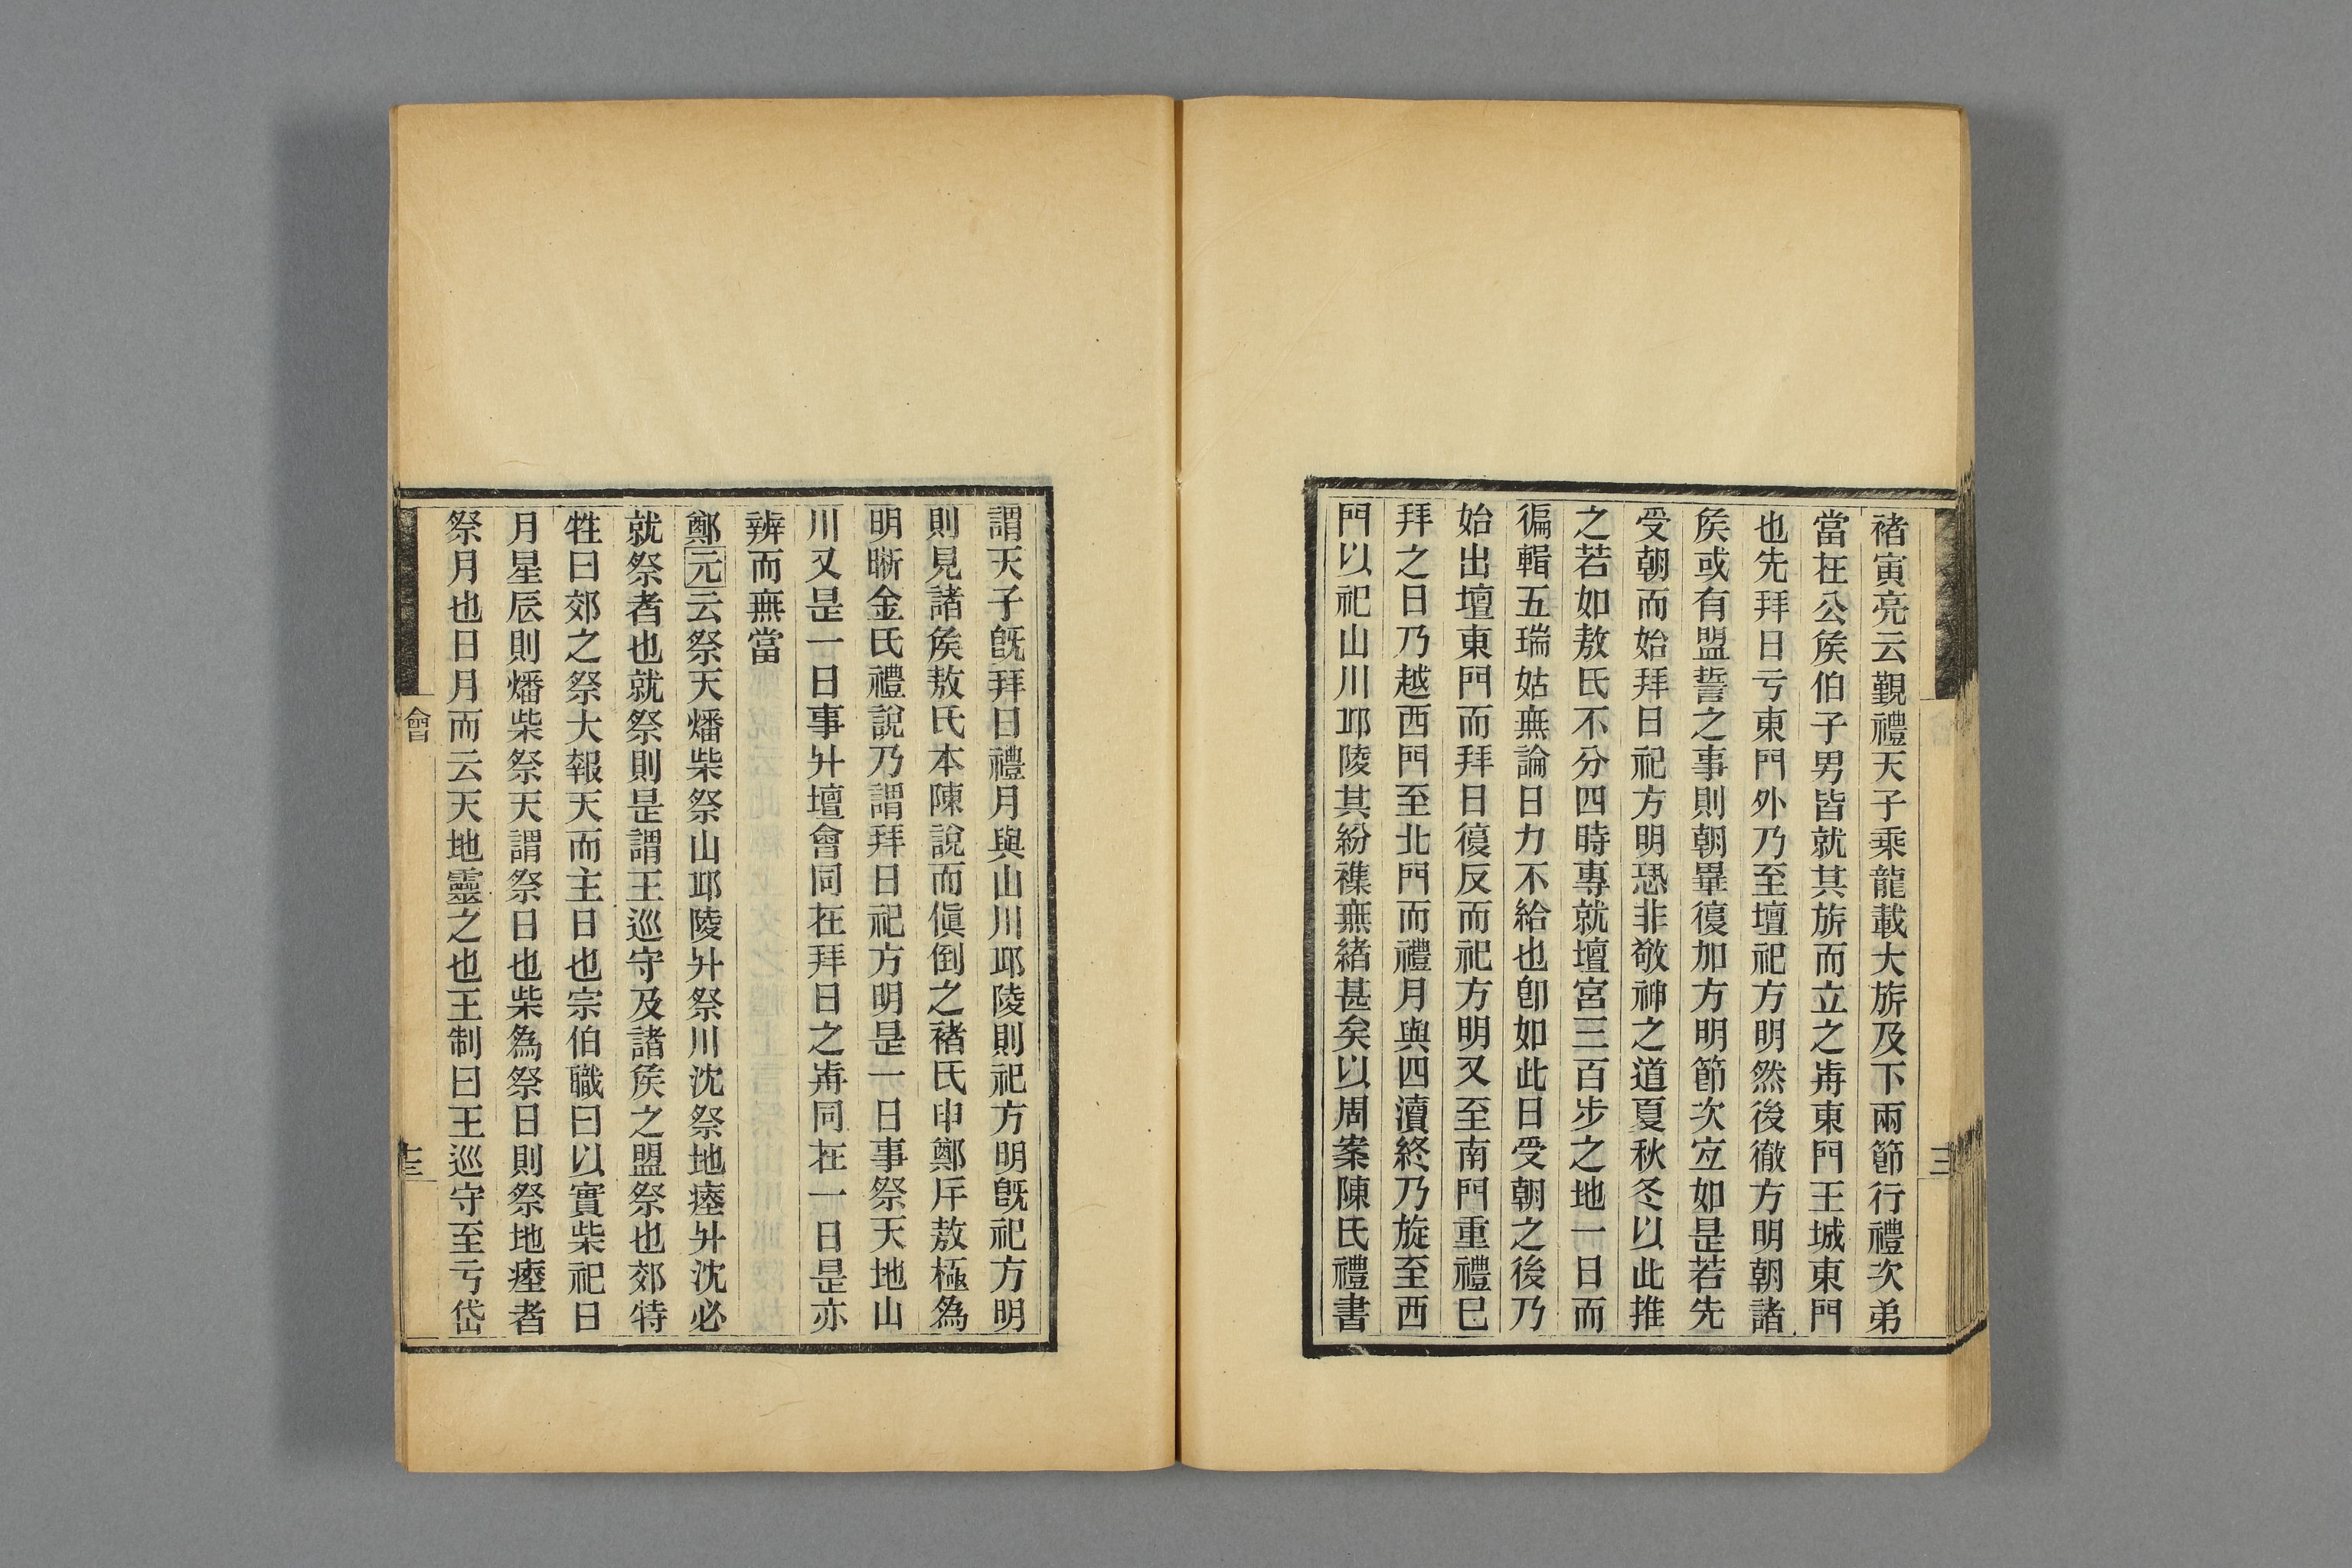 褚寅亮云覲禮天子乘龍載大旂及下兩節行禮次弟
當在公矦伯子男皆就其旂而立之歬東門王城東門
也先拜日亏東門外乃至壇祀方明然後徹方明朝諸
矦或有盟誓之事則朝畢復加方明節次宐如是若先
受朝而始拜日祀方明恐非敬神之道夏秋冬以此推
之若如敖氏不分四時專就壇宮三百步之地一日而
徧輯五瑞姑無論日力不給也卽如此日受朝之後乃
始出壇東門而拜日復反而祀方明又至南門重禮巳
拜之日乃越西門至北門而禮月與四瀆終乃旋至西
門以祀山川邱陵其紛襍無緒甚矣以周案陳氏禮書
謂天子旣拜日禮月與山川邱陵則祀方明旣祀方明
則見諸矦敖氏本陳說而傎倒之褚氏申鄭斥敖極爲
明晰金氏禮說乃謂拜日祀方明是一日事祭天地山
川又是一日事升壇會同在拜日之歬同在一日是亦
辨而無當
鄭元云祭天燔柴祭山邱陵升祭川沈祭地瘞升沈必
就祭者也就祭則是謂王巡守及諸矦之盟祭也郊特
牲曰郊之祭大報天而主日也宗伯職曰以實柴祀日
月星辰則燔柴祭天謂祭日也柴爲祭日則祭地瘞者
祭月也日月而云天地靈之也王制曰王巡守至亏岱
會
十三